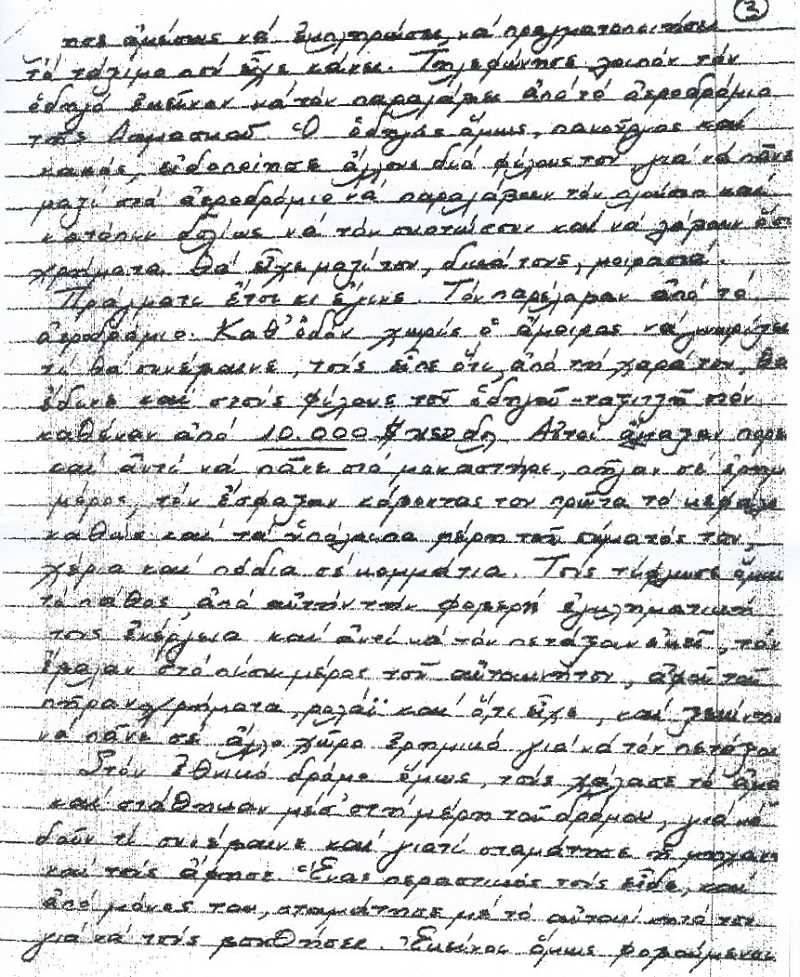 3
πσε ἀμέσως νά ἐκπληρώσει, νά πραγματοποιήσει
τό τάξιμο πού εἶχε κάνει. Τηλεφώνησε λοιπόν τόν
ὁδηγό ἐκεῖνον νά τόν παραλάβει ἀπό τό ἀεροδρόμιο
τῆς Δαμασκοῦ. Ὁ ὁδηγός ὅμως, πανοῦργος καί
κακός, εἰδοποίησε ἄλλους δυό φίλους του, γιά νά πᾶνε
μαζί στό ἀεροδρόμιο νά παραλάβουν τόν πλούσιο καί
κατόπιν δολίως νά τόν σκοτώσουν καί νά λάβουν ὅσα
χρήματα θά εἶχε μαζί του, δικά τους, μοιρασιά.
Πράγματι ἔτσι κι ἔγινε. Τόν παρέλαβαν ἀπό τό
ἀεροδρόμιο. Καθ' ὁδόν χωρίς ὁ ἄμοιρος νά γνωρίζει
τί θά συνέβαινε, τούς εἶπε ὅτι, ἀπό τή χαρά του, θά
ἔδινε καί στούς φίλους τοῦ ὁδηγοῦ-ταξιτζῆ στόν
καθέναν ἀπό 10.000 $ Αὐτοί
καί ἀντί νά πᾶνε στό μοναστήρι, πῆγαν σέ ἔρημο
μέρος, τόν ἔσφαξαν κόβοντάς του πρῶτα τό κεφάλι
καθώς καί τά ὑπόλοιπα μέρη τοῦ σώματός του,
χέρια καί πόδια σέ κομμάτια. Τούς τύφλωσε ὅμως
τό πάθος, ἀπό αὐτήν τήν φοβερή ἐγκληματική
τους ἐνέργεια καί ἀντί νά τόν πετάξουν ἐκεῖ, τόν
ἔβαλαν στό πίσω μέρος τοῦ αὐτοκινήτου, ἀφοῦ τοῦ
πῆραν χρήματα, ρολόϊ καί ὅ,τι εἶχε, καί
νά πᾶνε σε ἄλλο χῶρο ἐρημικό γιά νά τόν πετάξουν
Στόν Ἐθνικό δρόμο ὅμως, τούς χάλασε τό
καί στάθηκαν μέσ' στή μέση τοῦ δρόμου, γιά νά
δοῦν τί συνέβαινε καί γιατί σταμάτησε ἡ μηχανή
καί τούς ἄφησε. Ἕνας περαστικός τούς εἶδε, καί
ἀπό μόνος του, σταμάτησε μέ τό αὐτοκίνητό του
γιά νά τούς βοηθήσει. Ἐκεῖνοι ὅμως φοβούμενοι